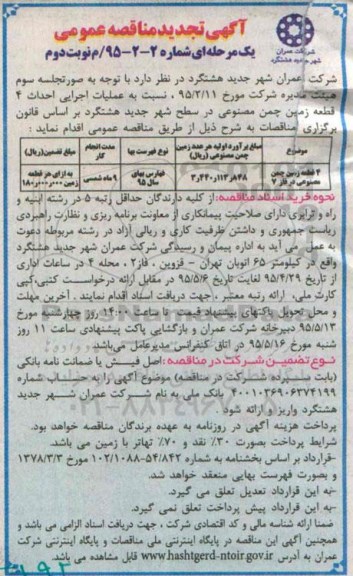 آگهی تجدید مناقصه عمومی
یک مرحله‌ای شماره ۲-۲-۹۵/م نوبت دوم
شرکت عمران
شهر جدید هشتگرد
شرکت عمران شهر جدید هشتگرد در نظر دارد با توجه به صورتجلسه سوم
هیئت مدیره شرکت مورخ ۹۵/۲/۱۱ ، نسبت به عملیات اجرایی احداث ۴
قطعه زمین چمن مصنوعی در سطح شهر جدید هشتگرد بر اساس قانون
برگزاری مناقصات به شرح ذیل از طریق مناقصه عمومی اقدام نماید :
موضوع | مبلغ برآورد اولیه هر عدد زمین چمن مصنوعی (ریال) | نوع فهرست بها | مدت انجام کار | مبلغ تضمین(ریال)
۴ قطعه زمین چمن مصنوعی در فاز ۲ | ۳،۴۴۰،۱۱۳،۰۴۸ | فهارس بهای سال ۹۵ | ۹ ماه شمسی | به ازای هر قطعه زمین ۱۸۰،۰۰۰،۰۰۰
نحوه خرید اسناد مناقصه: از کلیه دارندگان حداقل رتبه ۵ در رشته ابنیه و
راه و ترابری دارای صلاحیت پیمانکاری از معاونت برنامه ریزی و نظارت راهبردی
ریاست جمهوری و داشتن ظرفیت کاری و ریالی آزاد در رشته مربوطه دعوت
به عمل می آید به اداره پیمان و رسیدگی شرکت عمران شهر جدید هشتگرد
واقع در کیلومتر ۶۵ اتوبان تهران - قزوین ، فاز۲ ، محله ۴ در ساعات اداری
از تاریخ ۹۵/۴/۲۹ لغایت تاریخ ۹۵/۵/۶ در مقابل ارائه درخواست کتبی،کپی
کارت ملی، ارائه رتبه معتبر ، جهت دریافت اسناد اقدام نمایند . آخرین مهلت
و محل تحویل پاکتهای پیشنهاد قیمت تا ساعت ۱۴:۰۰ روز چهارشنبه مورخ
۹۵/۵/۱۳ دبیرخانه شرکت عمران و بازگشایی پاکت پیشنهادی ساعت ۱۱ روز
شنبه مورخ ۹۵/۵/۱۶ در اتاق کنفرانس مدیرعامل می‌باشد.
نوع تضمین شرکت در مناقصه: اصل فیش یا ضمانت نامه بانکی
(بابت سپرده شرکت در مناقصه) موضوع آگهی را به حساب شماره
۴۰۰۱۰۳۶۹۰۶۳۷۴۱۹۹ بانک ملی به نام شرکت عمران شهر جدید
هشتگرد واریز و ارائه شود.
پرداخت هزینه آگهی در روزنامه به عهده برندگان مناقصه خواهد بود.
شرایط پرداخت بصورت ۳۰٪ نقد و ۷۰٪ تهاتر با زمین می باشد.
-قرارداد بر اساس بخشنامه به شماره ۵۴/۸۴۲-۱۰۲/۱۰۸۸ مورخ ۱۳۷۸/۳/۳
و بصورت فهرست بهایی منعقد خواهد شد.
-به این قرارداد تعدیل تعلق می گیرد.
-به این قرارداد پیش پرداخت تعلق نمی گیرد.
ضمنا ارائه شناسه مالی و کد اقتصادی شرکت ، جهت دریافت اسناد الزامی می باشد و
همچنین آگهی این مناقصه در پایگاه اینترنتی ملی مناقصات و پایگاه اینترنتی شرکت
عمران به آدرس www.hashtgerd-ntoir.gov.ir قابل مشاهده می باشد.